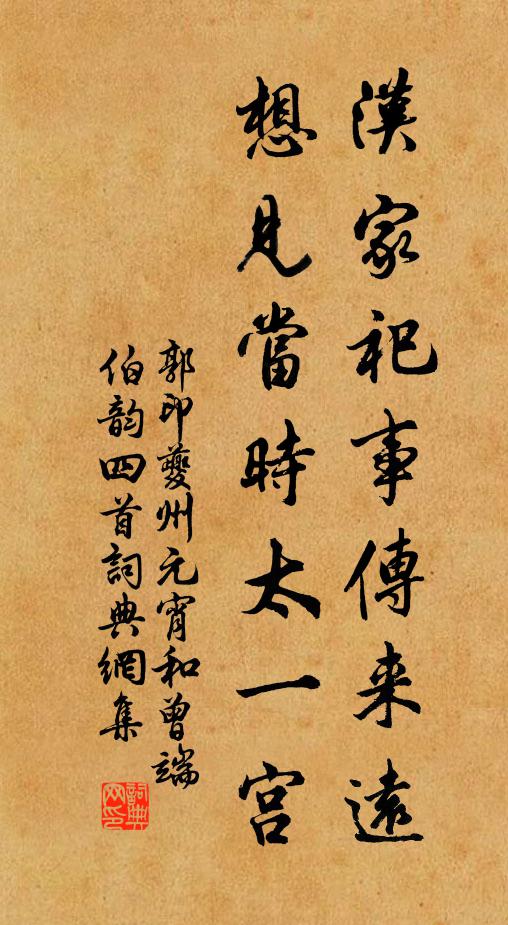 漢家祀事傳来遠
想見當時太一宮
郭印夔州元宵和曾端
伯韵四首詞典網集
詞典
网印